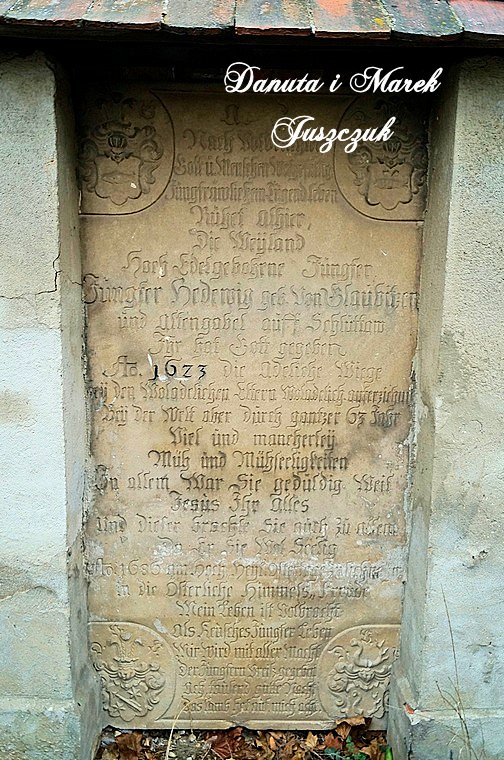 Danuta i Marek
Juszczuk
Nach
Gott ü Menschen
Jungfrawlichem Tugend leben
Rühet alhier,
Die Weyland
Hoch Edelgebohrne Jungfer,
Jungfer Hedewig geb. Von Glaubitzin
und Altengabel auff Schlüttaw
Ihr hat Gott gegeben
Ao. 1623 die Adeliche Wiege
bey den Woladelichen Eltern Woladelich
Bey der Welt aber dürch gantzer 63 Jahr
Viel ünd mancherley
Müh ünd Mühseeligkeiten
In allem War Sie gedüldig Weil
Jesus Ihr alles
Und dieser Sie auch Zü
Da Er Sie
Ao 1686 am Hoch
in die Osterliche Himmels
Mein Leben ist Volbracht
Als Keüsches Jüngfer Leben
Wir Wird mit aller Macht
Der Jüngfern Preiß gegeben
tausend güte Nacht
Das